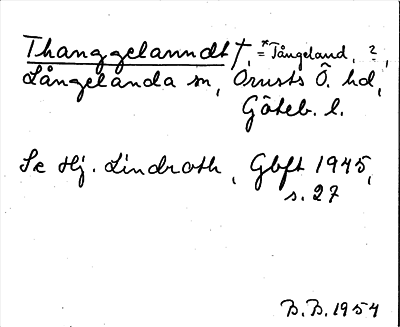 Thanggelanndt†, = *Tångeland, ?,
Långelanda sn, Orusts Ö. hd,
Göteb. l.
Se Hj. Lindroth, Gbft 1945,
s. 27
B.B. 1954